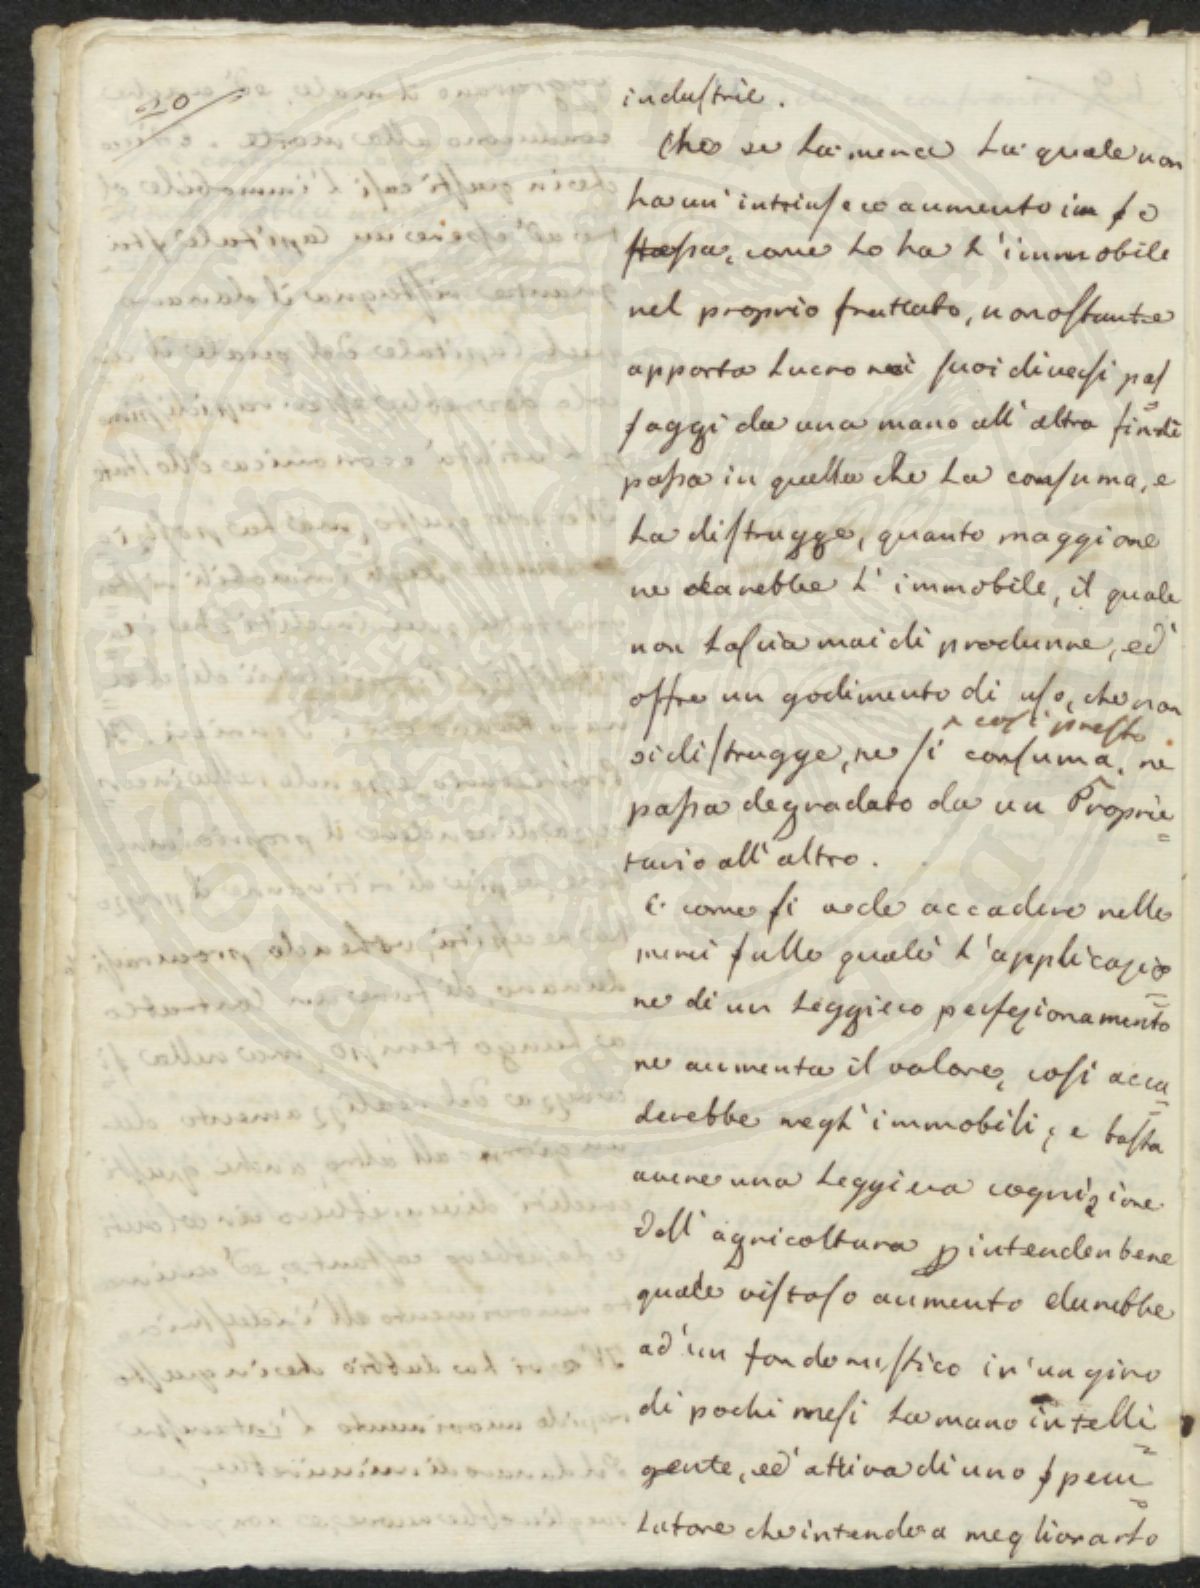 20
industrie.
Che se la merce la quale non
ha un' intrinseco aumento in se
stessa, come lo ha l'immobile
nel proprio fruttato, nonostante
apporta lucro nei suoi diversi pas=
saggi da una mano all' altra finche
passa in quella che la consuma, e
la distrugge, quanto maggiore
ne darebbe l' immobile, il quale
non lascia mai di produrne, ed'
offre un godimento di uso, che non
così presto
si distrugge, ne si consuma, ne
passa degradato da un Proprie=
tario all' altro.
E come si vede accadere nelle
merci sulle quali l'applicazio=
ne di un leggiero perfezionamento
ne aumenta il valore, così acca=
derebbe negl' immobili; e basta
avere una leggiera cognizione
dell' agricoltura p intender bene
quale vistoso aumento darebbe
ad' un fondo rustico in' un giro
di pochi mesi la mano intelli=
gente, ed' attiva di uno specu=
latore che intende a megliorarlo